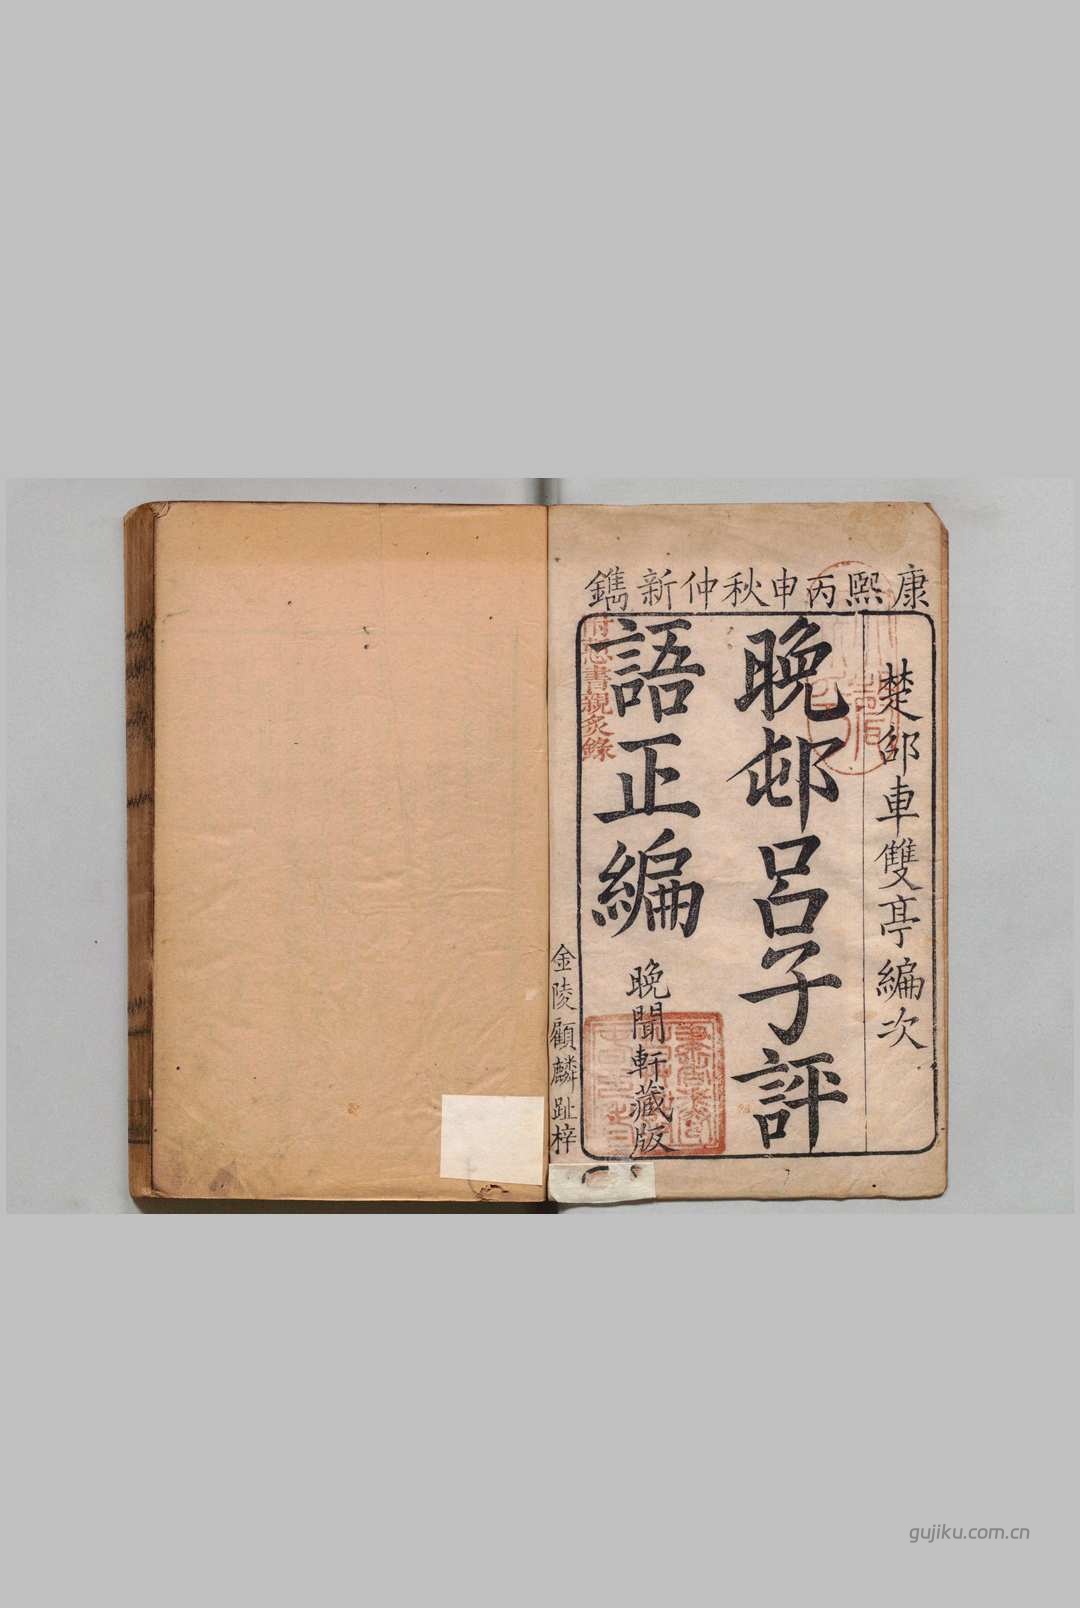 康熙丙申秋仲新鐫
楚邵車雙亭編次
晚邨呂子評
語正編
晚聞軒藏版
書親炙錄
金陵顧麟趾梓
gujiku.com.cn